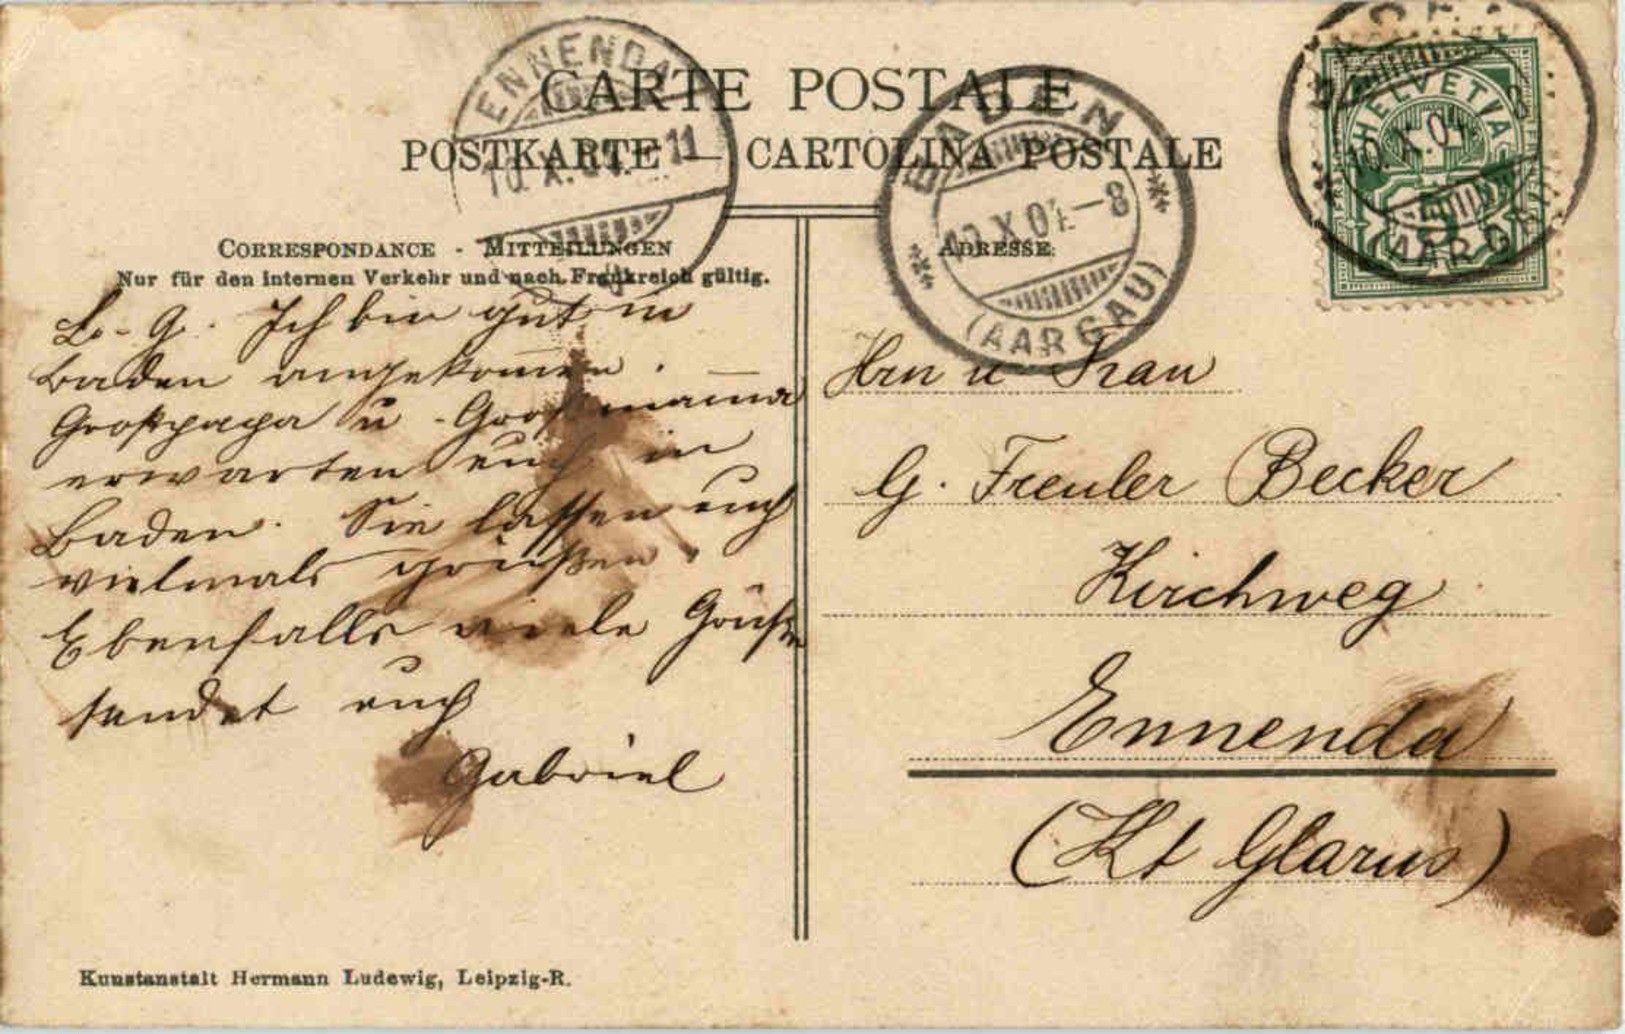 CARTE POSTALE
POSTKARTE — CARTOLINA POSTALE
ENNENDA
10. X. 04 - 11
BADEN
10 X 04 - 8
(AARGAU)
BADEN
10. X. 04 - 8
(AARGAU)
HELVETIA
5
CORRESPONDANCE - MITTEILUNGEN
Nur für den internen Verkehr und nach Frankreich gültig.
L. G. Ich bin gut in
Baden angekommen.
Großpapa u Großmama
erwarten euch in
Baden. Sie lassen euch
vielmals grüßen.
Ebenfalls viele Grüße
sendet euch
Gabriel
ADRESSE:
Hrn u Frau
G. Freuler Becker
Kirchweg
Ennenda
(Kt Glarus)
Kunstanstalt Hermann Ludewig, Leipzig-R.